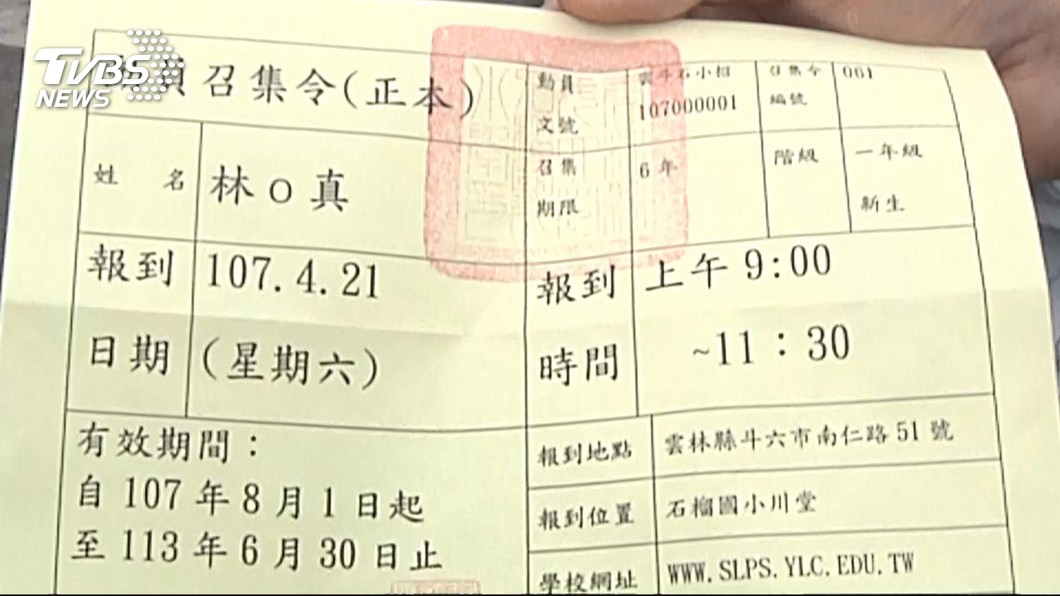 TVBS
NEWS
員召集令(正本)
動員
文號
雲斗石小招
107000001
召集令
編號
061
姓 名
林o真
召集
期限
6年
階級
一年級
新生
報到
日期
107.4.21
(星期六)
報到
時間
上午 9:00
~11：30
有效期間：
自 107 年 8 月 1 日起
至 113 年 6 月 30 日止
報到地點
雲林縣斗六市南仁路 51 號
報到位置
石榴國小川堂
學校網址
WWW.SLPS.YLC.EDU.TW